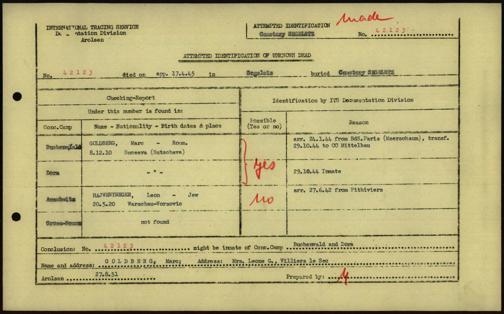 INTERNATIONAL TRACING SERVICE
Documentation Division
Arolsen
ATTEMPTED IDENTIFICATION made
Cemetery SEGELETZ
No. 42123
ATTEMPTED IDENTIFICATION OF UNKNOWN DEAD
No. 42123 died on app. 17.4.45 in Segeletz buried Cemetery SEGELETZ
Checking-Report
Under this number is found in:
Identification by ITS Documentation Division
Conc.Camp Name - Nationality - Birth dates & place Possible (Yes or no) Reason
Buchenwald GOLDBERG, Marc - Roum.
8.12.10 Suceava (Sutschawa)
yes
arr. 24.1.44 from BdS.Paris (Meerschaum), transf.
29.10.44 to CC Mittelbau
Dora - " - 29.10.44 Inmate
Auschwitz Leon - Jew
20.3.20 Warschau-Varsovie
no
arr. 27.6.42 from Pithiviers
Gross-Rosen not found
Conclusion: No. 42123 might be inmate of Conc.Camp Buchenwald and Dora
Name and address: GOLDBERG, Marc; Address: Mrs. Leone G., Villiers le Sec
Arolsen 27.8.51 Prepared by: